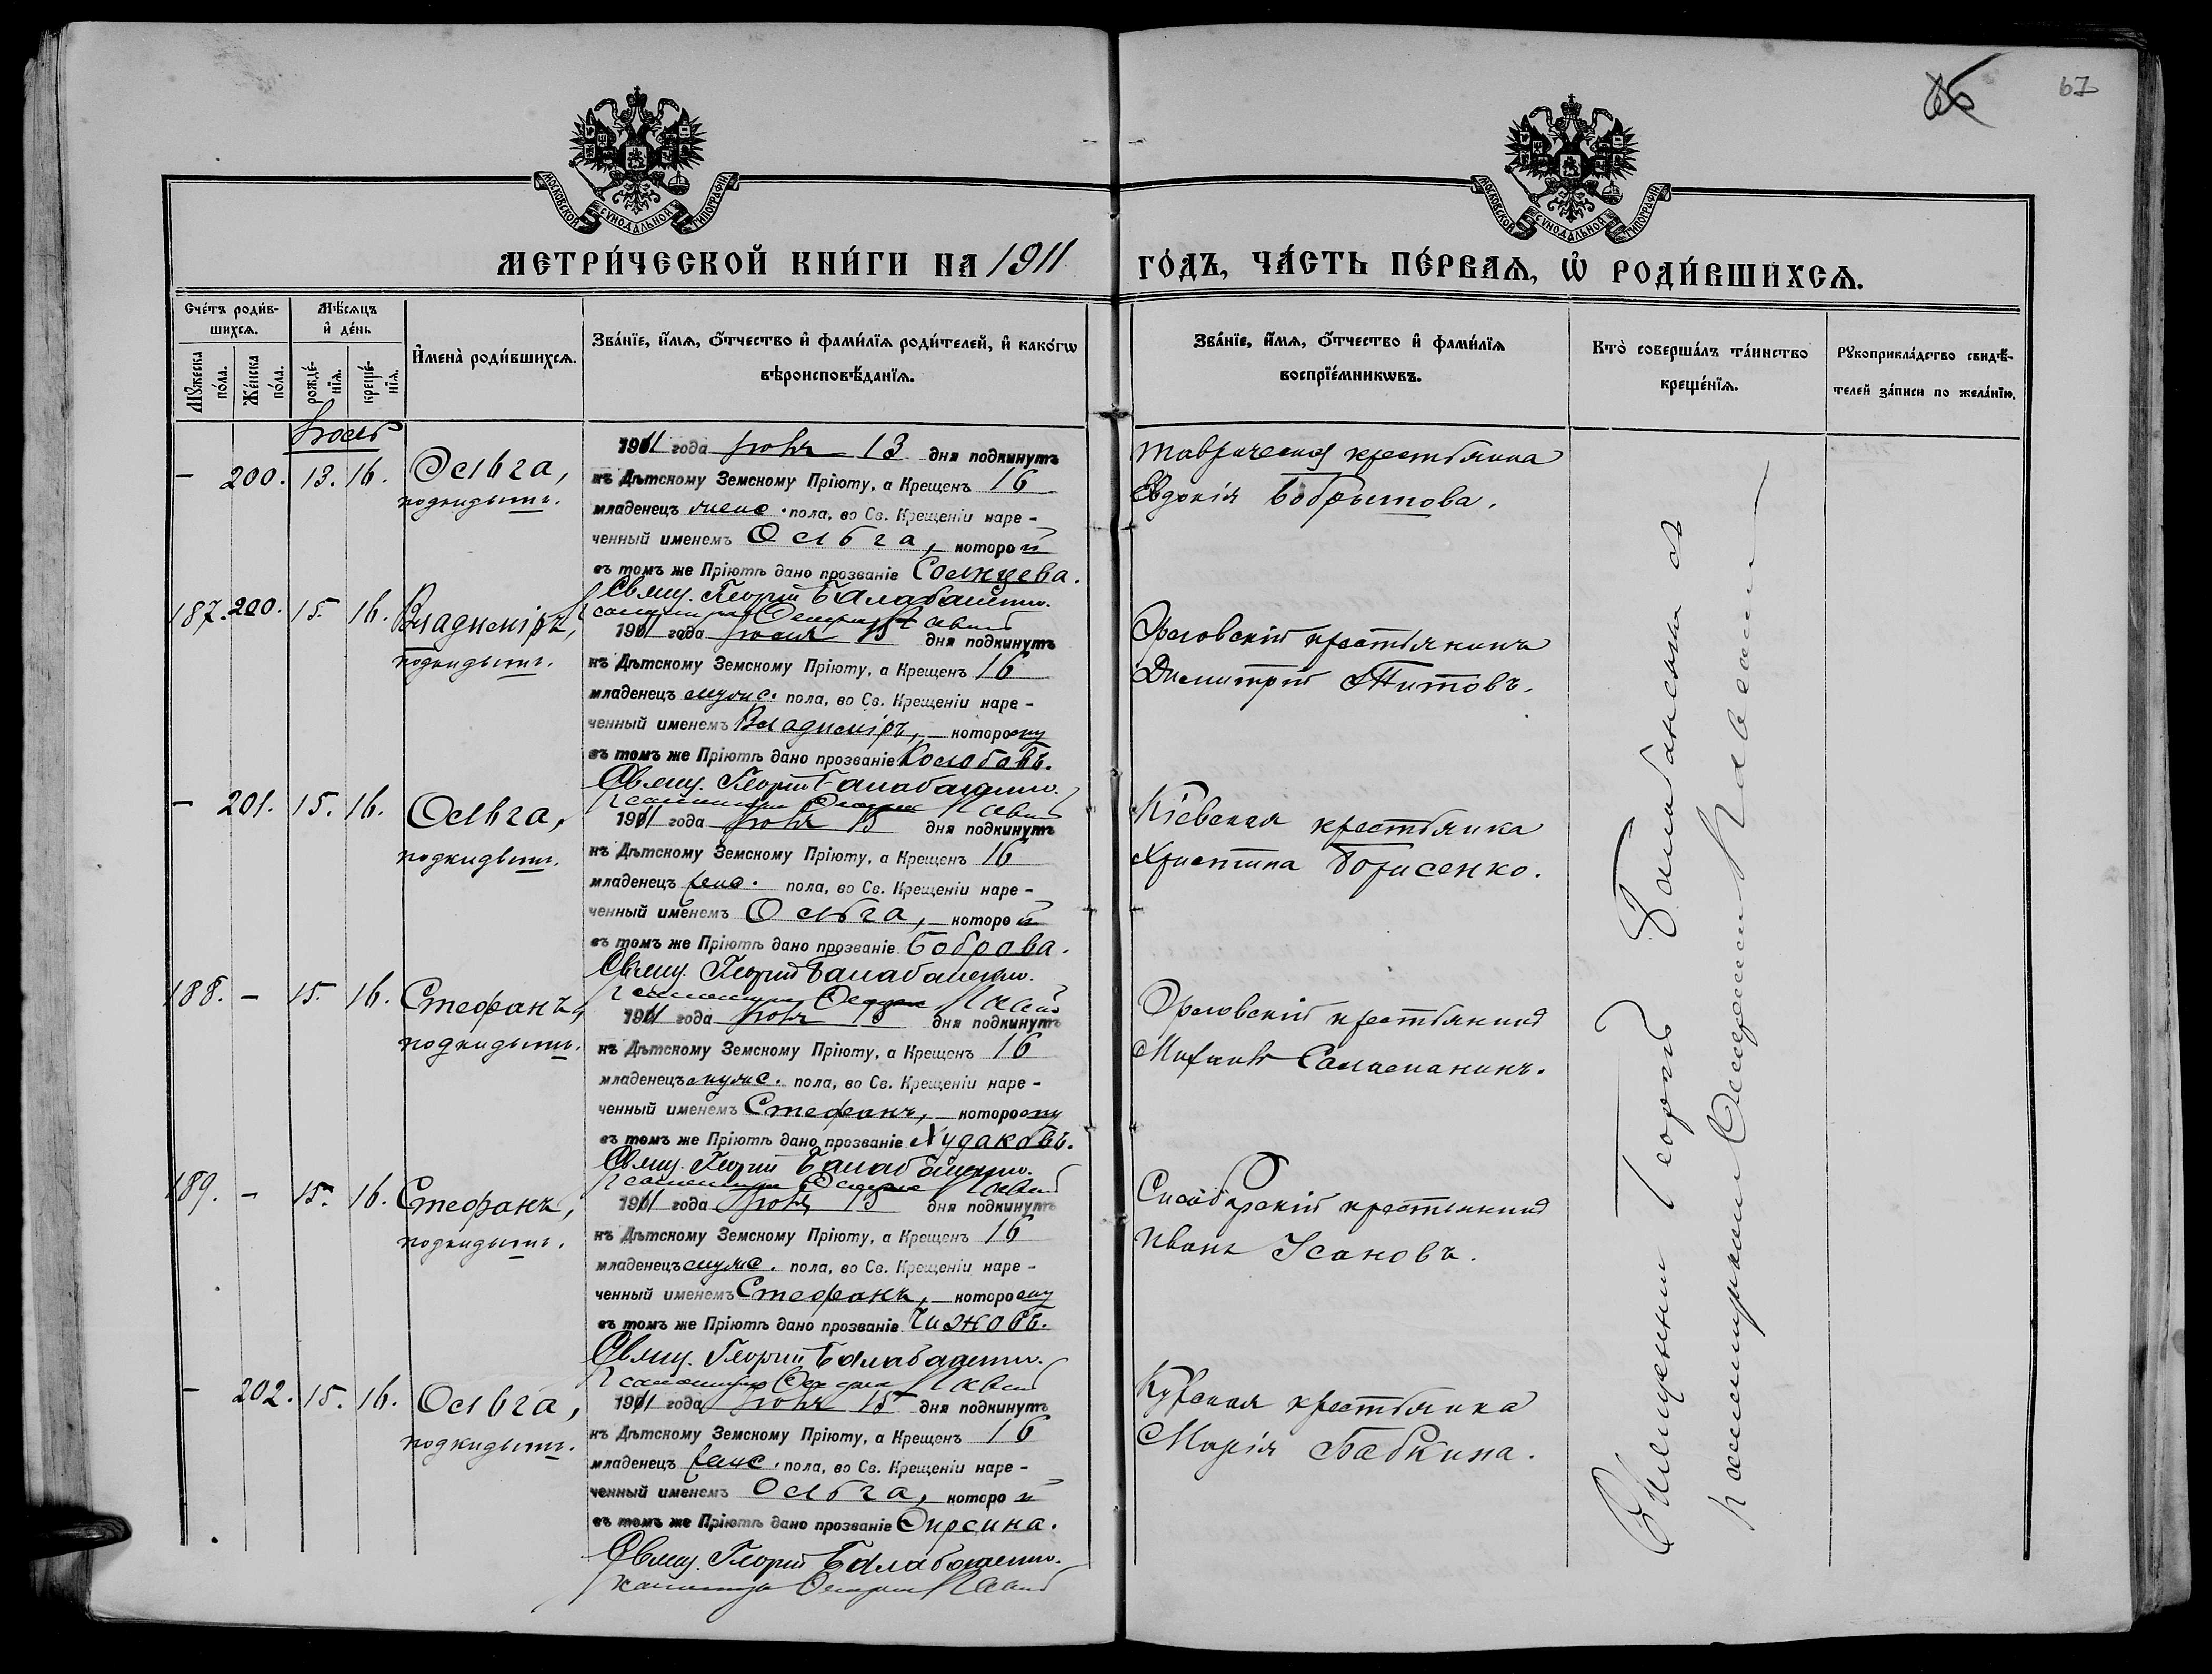 67
МОСКОВСКОЙ СѴНОДАЛЬНОЙ ТИПОГРАФІИ
МОСКОВСКОЙ СѴНОДАЛЬНОЙ ТИПОГРАФІИ
МЕТРИ́ЧЕСКОЙ КНИ́ГИ НА 1911 ГО́ДЪ, ЧА́СТЬ ПЕ́РВАѦ, Ѡ҆ РОДИ́ВШИХСѦ.
Сче́тъ роди́в-
шихсѧ.
Мѣ́сѧцъ
и҆ де́нь
Мꙋ́жеска
по́ла.
Же́нска
по́ла.
рожде́-
нїѧ.
креще́-
нїѧ.
И҆мена̀ роди́вшихсѧ.
Зва́нїе, и҆́мѧ, ѻ҆́тчество и҆ фами́лїѧ роди́телей, и҆ како́гѡ
вѣроисповѣ́данїѧ.
Зва́нїе, и҆́мѧ, ѻ҆́тчество и҆ фами́лїѧ
воспрїе́мникѡвъ.
Кто̀ соверша́лъ та́инство
креще́нїѧ.
Рꙋкоприкла́дство свидѣ́-
телей за́писи по жела́нїю.
Іюль
— 200. 13. 16. Ольга,
подкидышъ.
1911 года Іюля 13 дня подкинутъ
къ Дѣтскому Земскому Пріюту, а Крещенъ 16
младенецъ женс. пола, во Св. Крещеніи наре-
ченный именемъ Ольга, которой
въ томъ же Пріютѣ дано прозваніе Солнцева.
Свящ. Георгій Балабаненко.
Таврическая крестьянка
Евдокія
187. 200. 15. 16. Владиміръ,
подкидышъ.
1911 года Іюля 15 дня подкинутъ
къ Дѣтскому Земскому Пріюту, а Крещенъ 16
младенецъ мужс. пола, во Св. Крещеніи наре-
ченный именемъ Владиміръ, которому
въ томъ же Пріютѣ дано прозваніе Колобовъ.
Свящ. Георгій Балабаненко.
Орловскій крестьянинъ
Димитрій Титовъ.
— 201. 15. 16. Ольга,
подкидышъ.
1911 года Іюля 15 дня подкинутъ
къ Дѣтскому Земскому Пріюту, а Крещенъ 16
младенецъ женс. пола, во Св. Крещеніи наре-
ченный именемъ Ольга, которой
въ томъ же Пріютѣ дано прозваніе Боброва.
Свящ. Георгій Балабаненко.
Кіевская крестьянка
Христина Борисенко.
188. — 15. 16. Стефанъ,
подкидышъ.
1911 года Іюля 15 дня подкинутъ
къ Дѣтскому Земскому Пріюту, а Крещенъ 16
младенецъ мужс. пола, во Св. Крещеніи наре-
ченный именемъ Стефанъ, которому
въ томъ же Пріютѣ дано прозваніе Худаковъ.
Свящ. Георгій Балабаненко.
Орловскій крестьянинъ
Михаилъ
189. — 15. 16. Стефанъ,
подкидышъ.
1911 года Іюля 15 дня подкинутъ
къ Дѣтскому Земскому Пріюту, а Крещенъ 16
младенецъ мужс. пола, во Св. Крещеніи наре-
ченный именемъ Стефанъ, которому
въ томъ же Пріютѣ дано прозваніе Чижовъ.
Свящ. Георгій Балабаненко.
Симбирскій крестьянинъ
Иванъ Усановъ.
— 202. 15. 16. Ольга,
подкидышъ.
1911 года Іюля 15 дня подкинутъ
къ Дѣтскому Земскому Пріюту, а Крещенъ 16
младенецъ женс. пола, во Св. Крещеніи наре-
ченный именемъ Ольга, которой
въ томъ же Пріютѣ дано прозваніе Фирсина.
Свящ. Георгій Балабаненко.
Курская крестьянка
Марія Бабкина.
Священникъ Георгій Балабаненко съ